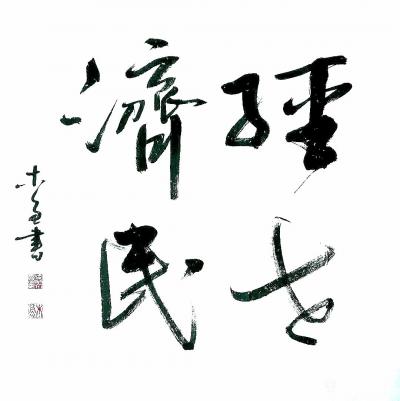 經世
濟民
書